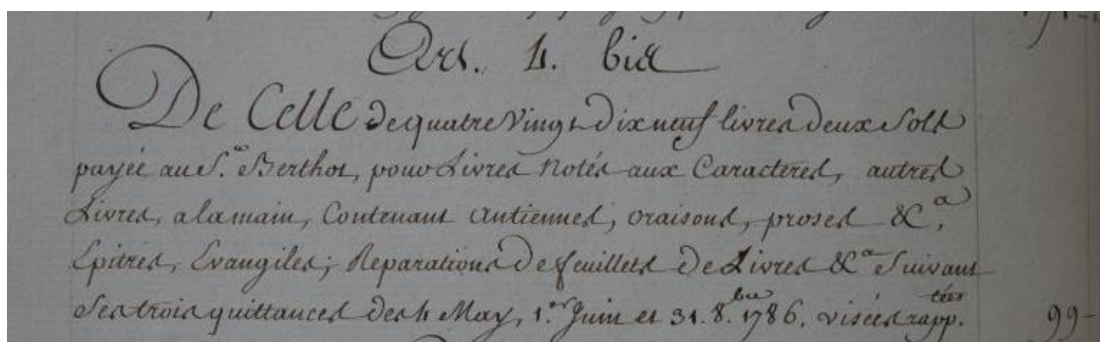 Art. 4. bis
De Celle de quatre Vingt Dix neuf livres deux Sols
payée au S.r Berthot, pour Livres Notés aux Caracteres, autres
Livres, a la main, Contenant Antiennes, Oraisons, proses &c.a,
Epitres, Evangiles; Reparations De feuillets De Livres &c.a Suivant
Ses trois quittances des 4 May, 1.er Juin et 31. 8.bre 1786, visées rapp.tées
99-